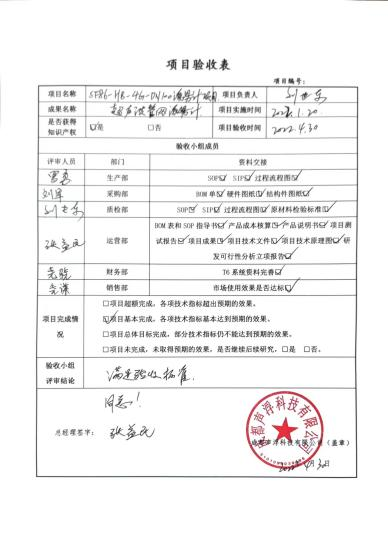 项目验收表
项目编号：
项目名称 SF86-HB-4G-DN100流量计项目 项目负责人
成果名称 超声波管网流量计 项目实施时间 2022.1.20
是否获得知识产权 ☑是 □否 项目验收时间 2022.4.30
验收小组成员
评审人员 部门 资料交接
生产部 SOP☑ SIP☑ 过程流程图☑
采购部 BOM单☑ 硬件图纸☑ 结构件图纸☑
质检部 SOP☑ SIP☑ 过程流程图☑ 原材料检验标准☑
张益民 运营部 BOM表和SOP指导书☑ 产品成本核算☑ 产品说明书☑ 项目测
试报告☑ 项目成果☑ 项目技术文件☑ 项目技术原理图☑ 研
发可行性分析立项报告☑
财务部 T6系统资料完善☑
销售部 市场使用效果是否达标☑
项目完成情况
□项目超额完成，各项技术指标超出预期的效果。
☑项目基本完成，各项技术指标基本达到预期的效果。
□项目总体目标完成，部分技术指标仍不能达到预期的效果。
□项目未完成，未取得预期的效果，是否继续后续研究，□是 □否。
验收小组评审结论 满足验收标准.
同意！
总经理签字： 张益民
成都声浮科技有限公司（盖章）
2022年4月30日